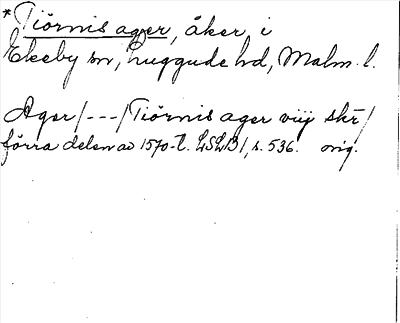 *Tiörnis ager, åker, i
Ekeby sn, Luggude hd, Malm. l.
Ager /---/ Tiörnis ager viij skr /
förra delen av 1570-t. LSLB 1, s. 536. orig.